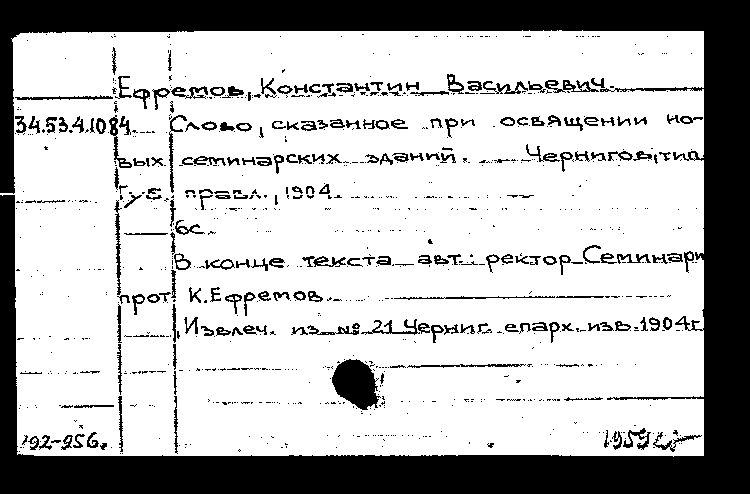 Ефремов, Константин Васильевич.
34.53.4.1084. Слово, сказанное при освящении но-
вых семинарских зданий. Чернигов, тип.
Губ. правл., 1904.
6с.
В конце текста авт.: ректор Семинари
прот. К.Ефремов.
Извлеч. из № 21 Черниг. епарх. изв. 1904г.
192-956. 1959